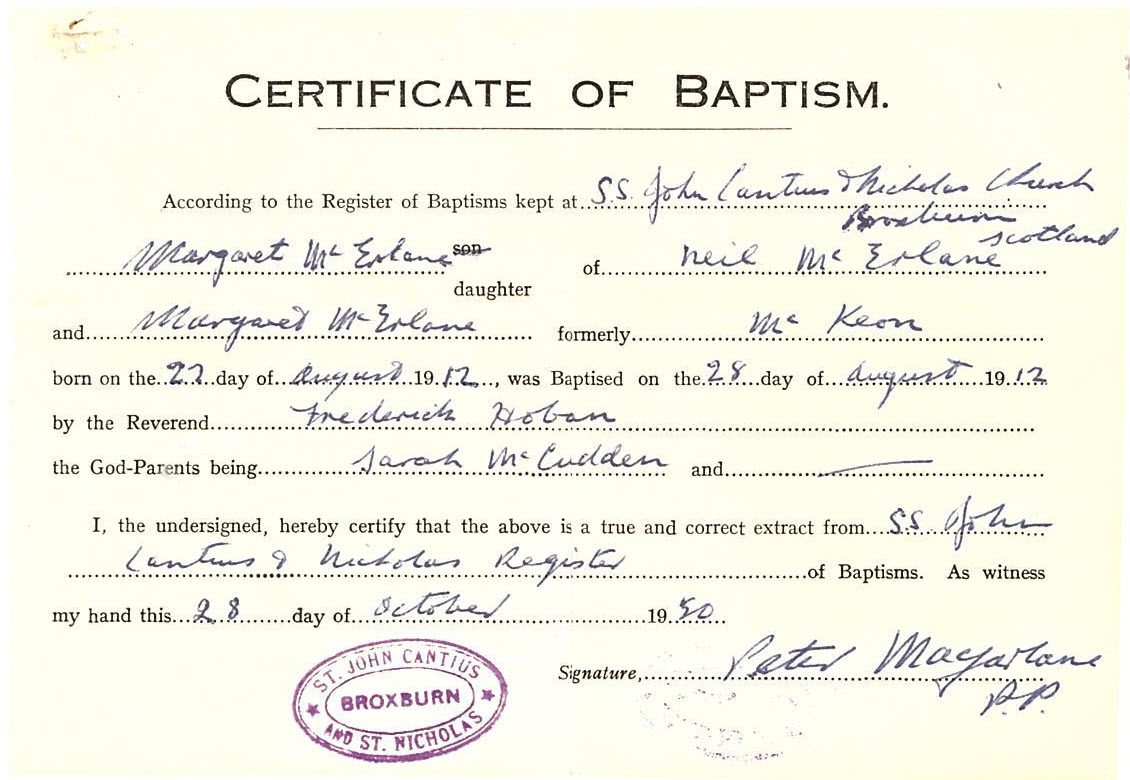 CERTIFICATE OF BAPTISM.
According to the Register of Baptisms kept at S.S. John Cantius & Nicholas Church
Broxburn
Scotland
Margaret Mc Erlane son of Neil Mc Erlane
daughter
and Margaret McErlane formerly Mc Keon
born on the 22 day of August 1912, was Baptised on the 28 day of August 1912
by the Reverend Frederick Hoban
the God-Parents being Sarah McCudden and
I, the undersigned, hereby certify that the above is a true and correct extract from S.S. John
Cantius & Nicholas Register of Baptisms. As witness
my hand this 28 day of October 1950.
Signature, Peter Macfarlane
P.P.
ST. JOHN CANTIUS
BROXBURN
AND ST. NICHOLAS